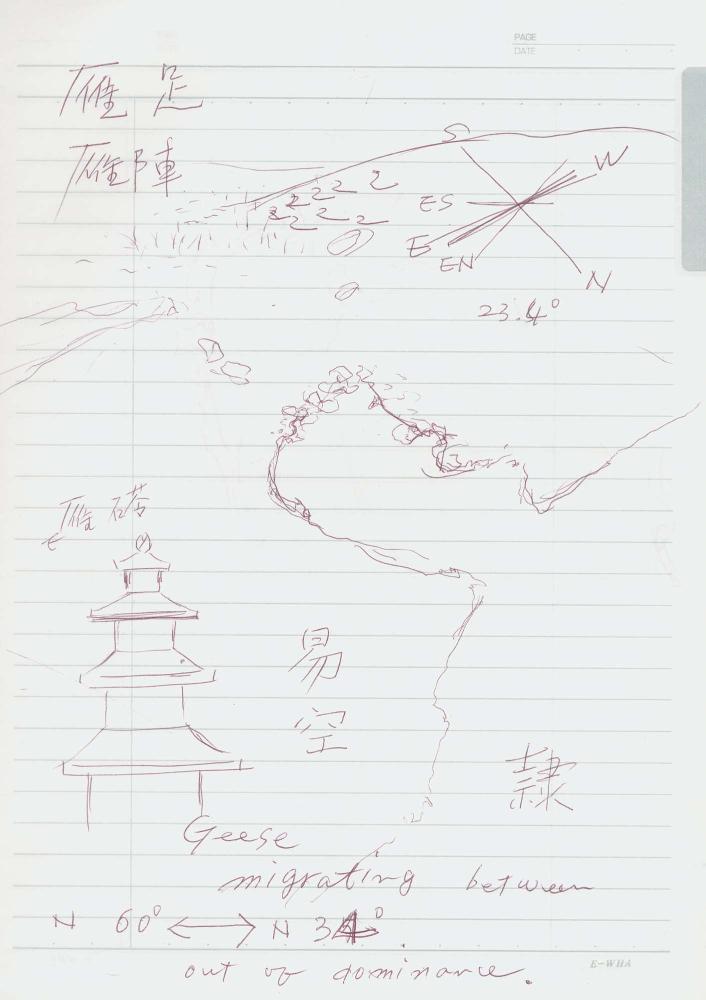 PAGE
DATE
雁足
雁陣
S
W
ES
E
EN
N
23.4°
雁塔
易
空
隷
Geese
migrating between
N 60° ↔ N 34°
out of dominance.
E-WHA